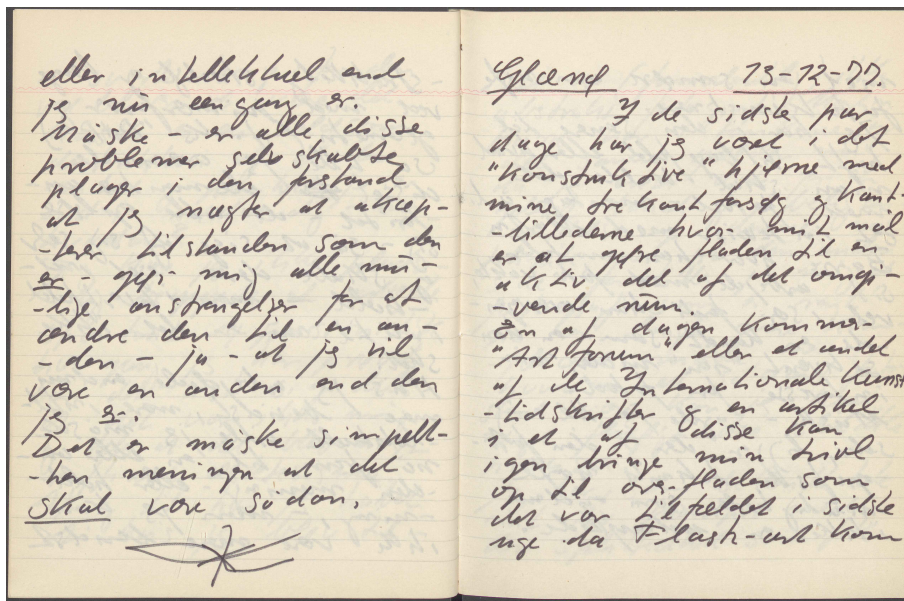 eller intellektuel end
jeg nu een gang er.
Måske - er alle disse
problemer selvskabte
plager i den forstand
at jeg nægter at akcep-
-tere tilstanden som den
er - gør mig alle mu-
-lige anstrengelser for at
ændre den til en an-
-den - ja - at jeg vil
være en anden end den
jeg er.
Det er måske simpelt-
-hen meningen at det
skal være sådan.
Glænø 13-12-77.
I de sidste par
dage har jeg været i det
"Konstruktive" hjørne med
mine trekantforsøg og kant-
-billederne hvor mit mål
er at gøre fladen til en
aktiv del af det omgi-
-vende rum.
En af dagen kommer
"Art forum" eller et andet
af de Internationale Kunst
-tidskrifter og en artikel
i et af disse kan
igen bringe min tvivl
op til overfladen som
det var tilfældet i sidste
uge da Flash-art kom